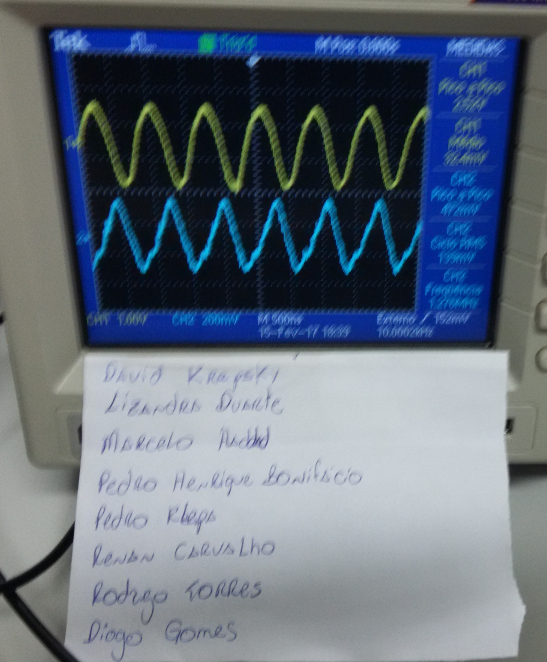 Tek
M Pos: 0.000s
MEDIDAS
CH1
Pico a Pico
CH1
Média
CH2
Pico a Pico
472mV
CH2
Ciclo RMS
139mV
CH2
Frequência
1.276MHz
CH1 1.00V CH2 200mV M 500ns Externo / 152mV
15-Fev-17 10.0002kHz
David Krepsky
Lizandra Duarte
Marcelo
Pedro Henrique Bonifácio
Pedro Kleps
Renan Carvalho
Rodrigo Torres
Diogo Gomes